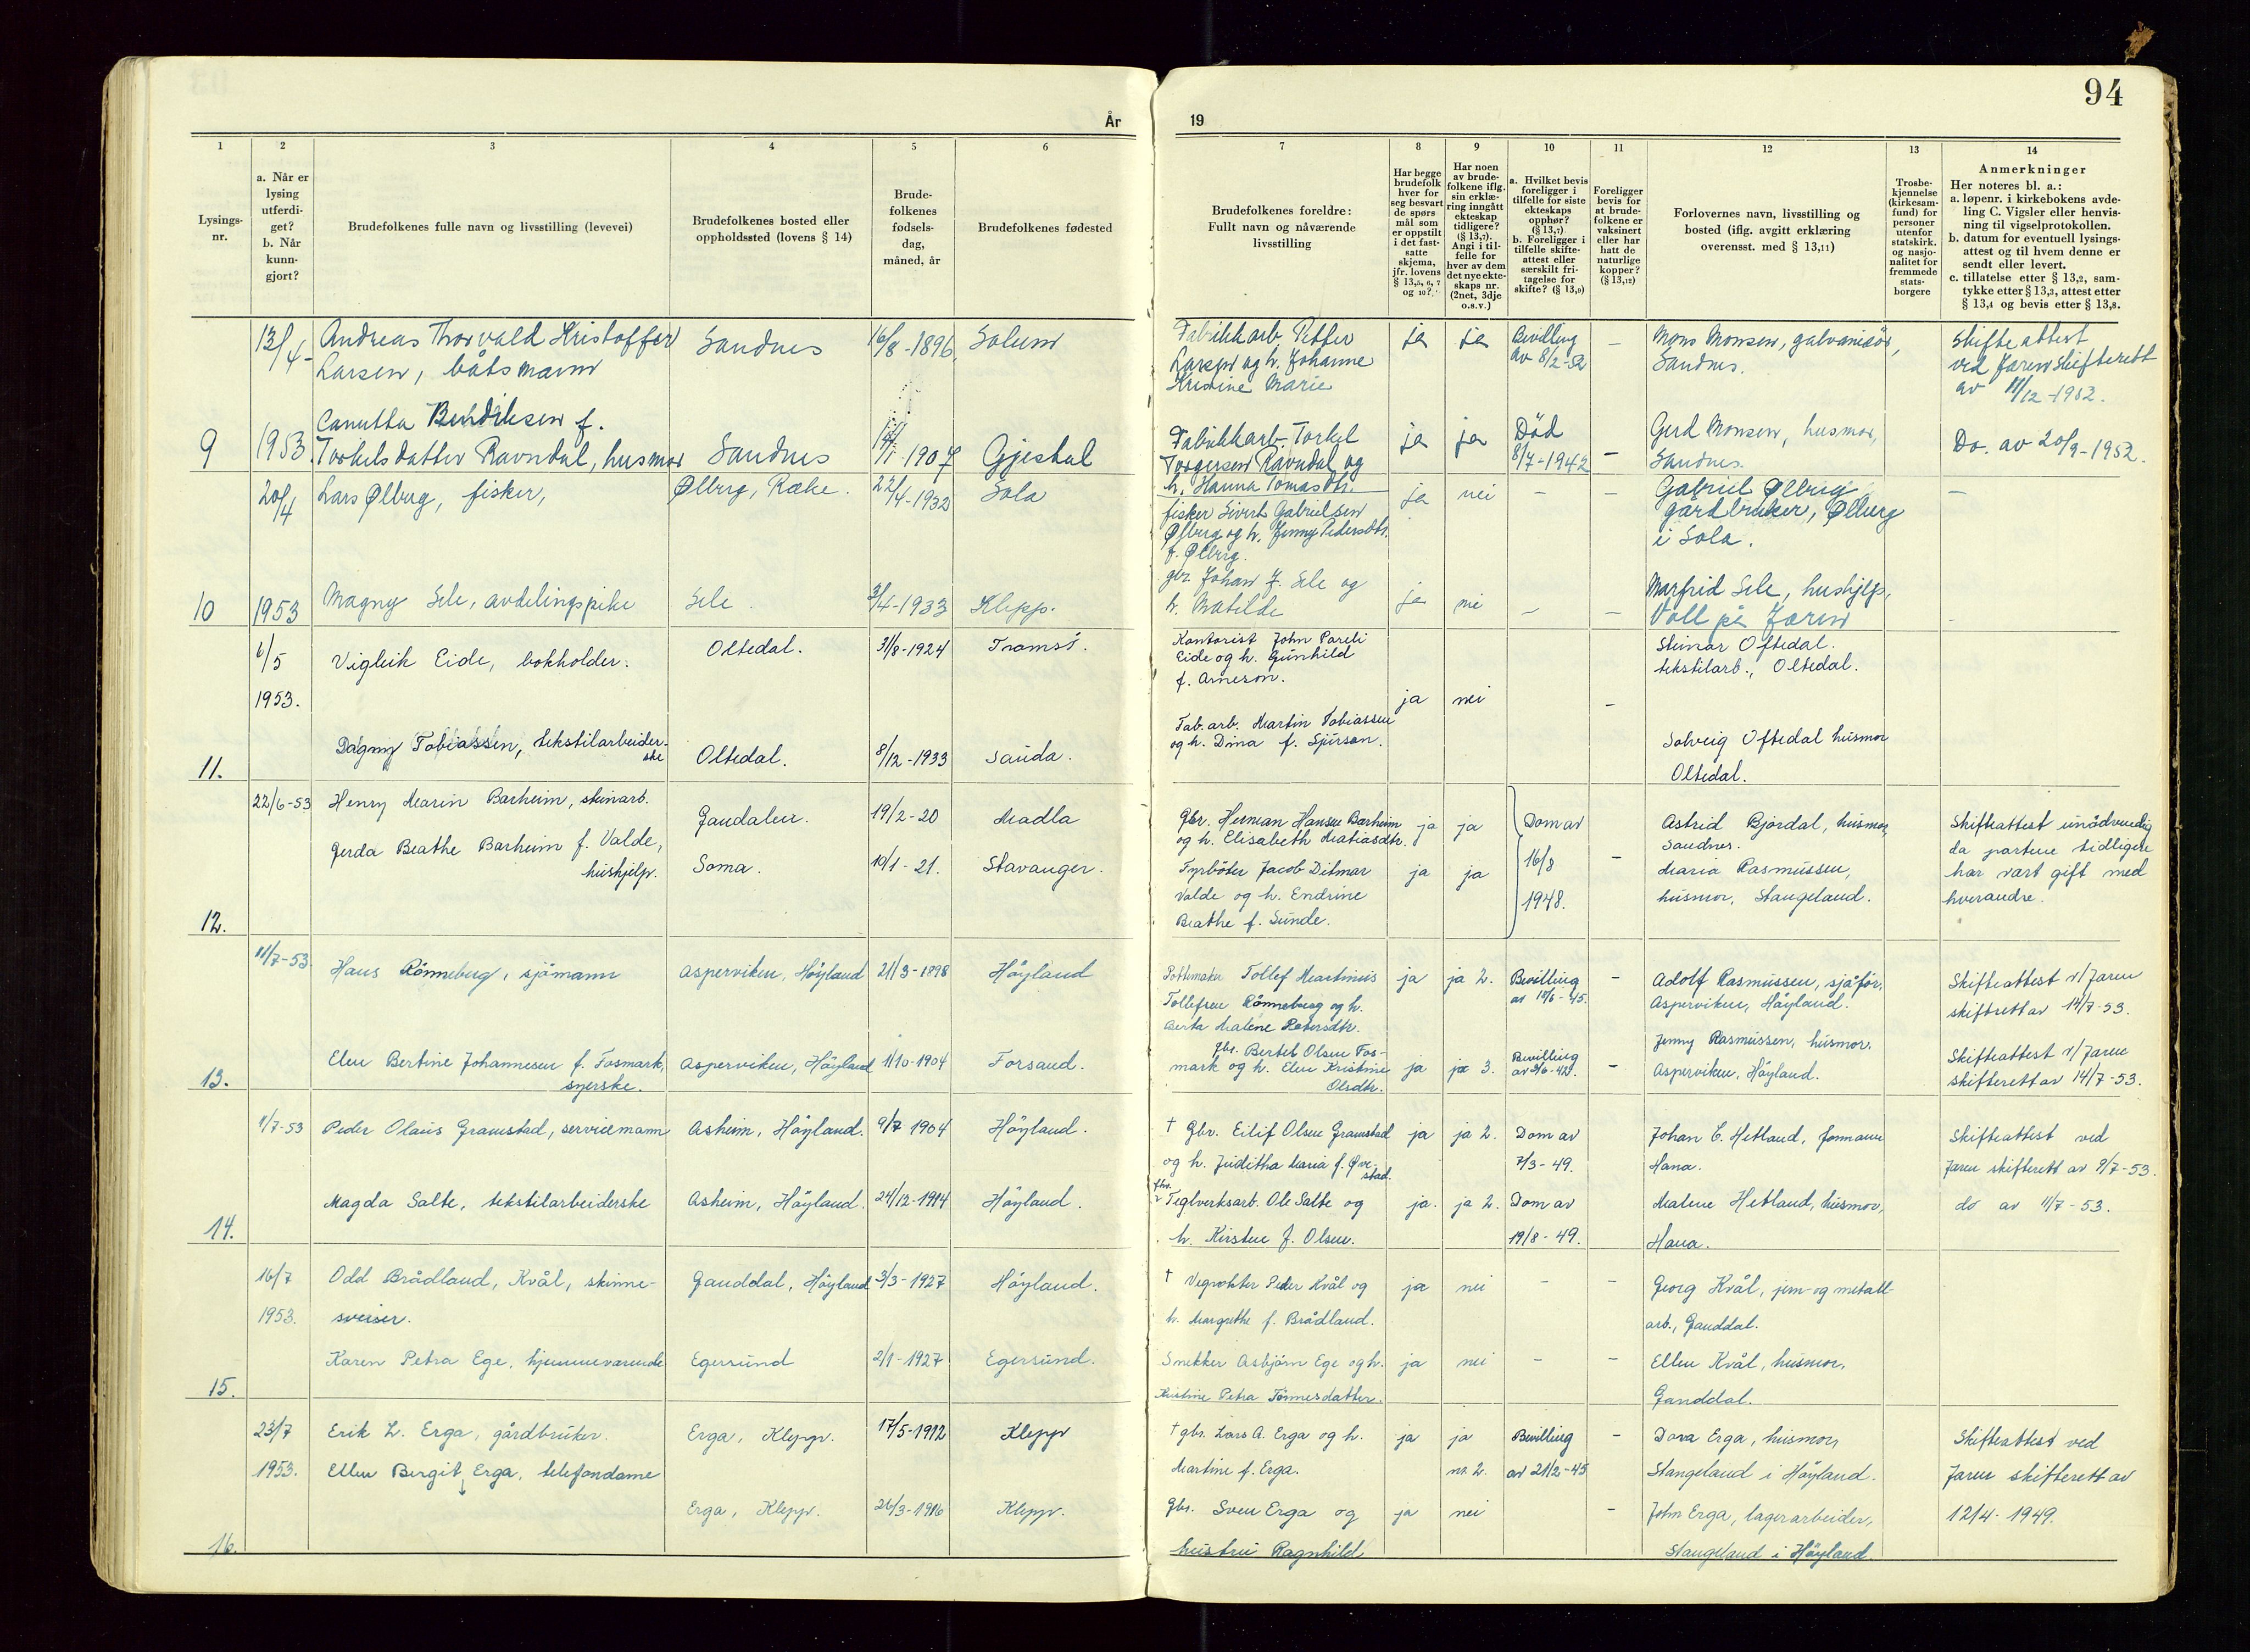 94
År
19
1
2
3
4
5
6
7
8
9
10
11
12
13
14
Lysings-
nr.
a. Når er
lysing
utferdi-
get?
b. Når
kunn-
gjort?
Brudefolkenes fulle navn og livsstilling (levevei)
Brudefolkenes bosted eller
oppholdssted (lovens § 14)
Brude-
folkenes
fødsels-
dag,
måned, år
Brudefolkenes fødested
Brudefolkenes foreldre:
Fullt navn og nåværende
livsstilling
Har begge
brudefolk
hver for
seg besvart
de spørs
mål som
er oppstilt
i det fast-
satte
skjema,
jfr. lovens
§ 13,5, 6, 7
og 10?
Har noen
av brude-
folkene iflg.
sin erklæ-
ring inngått
ekteskap
tidligere?
(§ 13,7).
Angi i til-
felle for
hver av dem
det nye ekte-
skaps nr.
(2net, 3dje
o.s.v.)
a. Hvilket bevis
foreligger i
tilfelle for siste
ekteskaps
opphør?
(§ 13,7)
b. Foreligger i
tilfelle skifte-
attest eller
særskilt fri-
tagelse for
skifte? (§ 13,9)
Foreligger
bevis for
at brude-
folkene er
vaksinert
eller har
hatt de
naturlige
kopper?
(§ 13,12)
Forlovernes navn, livsstilling og
bosted (iflg. avgitt erklæring
overensst. med § 13,11)
Trosbe-
kjennelse
(kirkesam-
fund) for
personer
utenfor
statskirk.
og nasjo-
nalitet for
fremmede
stats-
borgere
Anmerkninger
Her noteres bl. a.:
a. løpenr. i kirkebokens avde-
ling C. Vigsler eller henvis-
ning til vigselprotokollen.
b. datum for eventuell lysings-
attest og til hvem denne er
sendt eller levert.
c. tillatelse etter § 13,2, sam-
tykke etter § 13,3, attest etter
§ 13,4 og bevis etter § 13,8.
13/4- Andreas Thorvald Kristoffer Sandnes 16/8-1896 Solum
Larsen, båtsmann
Fabrikkarb. Petter ja ja Bevilling — Mons Monsen, galvanisør, Skifteattest
Larsen og h. Johanne av 8/2-52 Sandnes. ved Jæren Skifterett
Kristine Marie av 11/12-1952.
Canutta Bendiksen f.
9 1953. Torkelsdatter Ravndal, husmor Sandnes 14/1-1907 Gjestal
Fabrikkarb. Torkel ja ja Død Gerd Monsen, husmor, Do. av 20/9-1952.
Torgersen Ravndal og 8/7-1942 — Sandnes.
h. Hanna Tomasdtr.
20/4 Lars Ølberg, fisker, Ølberg, Ræke. 22/4-1932 Sola
fisker Sivert Gabrielsen ja nei — — Gabriel Ølberg —
Ølberg og h. Jenny Pedersdtr. gårdbruker, Ølberg
f. Ølberg. i Sola.
10 1953 Magny Sele, avdelingspike Sele. 3/4-1933 Klepp.
gbr. Johan J. Sele og ja nei — — Marfrid Sele, hushjelp,
h. Matilde Voll på Jæren
11. 6/5 1953. Vigleik Eide, bokholder. Oltedal. 31/8-1924 Tromsö.
Kontorist John Pareli Steinar Oftedal.
Eide og h. Gunhild tekstilarb., Oltedal.
f. Arneson.
ja nei —
Dagny Tobiassen, tekstilarbeider-
ske Oltedal. 8/12-1933 Sauda.
Fab.arb. Martin Tobiassen Solveig Oftedal husmor
og h. Dina f. Sjurson. Oltedal.
12. 22/6-53 Henry Marin Barheim, steinarb. Gandalen. 19/2-20 Madla
Gbr. Herman Hansen Barheim ja ja Dom av Astrid Bjordal, husmor, Skifteattest unödvendig
og h. Elisabeth Matiasdtr. Sandnes. da partene tidligere
Gerda Beathe Barheim f. Valde,
hushjelp. Soma. 10/1-21. Stavanger.
Fyrböter Jacob Ditmar ja ja 16/8 — Maria Rasmussen, har vært gift med
Valde og h. Endrine 1948. husmor, Stangeland. hverandre.
Beathe f. Sunde.
13. 11/7-53. Hans Rönneberg, sjömann Asperviken, Höyland 21/3-1898 Höyland
Pottemaker Tollef Martinius ja ja 2. Bevilling — Adolf Rasmussen, sjåför, Skifteattest v/Jæren
Tollefsen Rönneberg og h. av 12/6-45. Asperviken, Höyland. skifterett av 14/7-53.
Berta Malene Petersdtr.
Elen Bertine Johannesen f. Fosmark,
syerske. Asperviken, Höyland 1/10-1904 Forsand.
gbr. Bertel Olsen Fos- Jenny Rasmussen, husmor.
mark og h. Elen Kristine ja ja 3. Bevilling av 3/6-42. — Asperviken, Höyland. Skifteattest v/Jæren
Olsdtr. skifterett av 14/7-53.
14. 11/7-53 Peder Olaus Gramstad, servicemann Asheim, Höyland. 9/7 1904 Höyland.
† Gbr. Eilif Olsen Gramstad ja ja 2. Dom av Johan C. Hetland, formann Skifteattest ved
og h. Juditha Maria f. Øve-
stad. 7/3-49. Hana. Jæren skifterett av 9/7-53.
Magda Salte, tekstilarbeiderske Asheim, Höyland. 24/12-1914 Höyland.
Teglverksarb. Ole Salte og ja. ja 2. Dom av Malene Hetland, husmor, do av 11/7-53.
h. Kirsten f. Olsen. 19/8-49. Hana.
15. 16/7 1953. Odd Brådland, Kvål, skinne-
sveiser. Ganddal, Höyland 3/3-1927 Höyland.
† Vegvokter Peder Kvål og ja nei — — Georg Kvål, jern- og metall-
h. Margrethe f. Brådland. arb., Ganddal.
Karen Petra Ege, hjemmeværende Egersund 2/1-1927 Egersund.
Snekker Asbjörn Ege og h. ja nei — — Ellen Kvål, husmor,
Kristine Petra Tönnesdatter. Ganddal.
16. 23/7 1953. Erik L. Erga, gårdbruker. Erga, Klepp. 17/5-1912 Klepp
† gbr. Lars A. Erga og h. ja ja Bevilling — Dora Erga, husmor, Skifteattest ved
Martine f. Erga. nr. 2. av 21/2-45 Stangeland i Höyland. Jæren skifterett av
Ellen Bergit Erga, telefondame Erga, Klepp. 26/3-1916 Klepp.
Gbr. Sven Erga og ja nei — John Erga, lagerarbeider, 12/4-1949.
hustru Ragnhild Stangeland i Höyland.